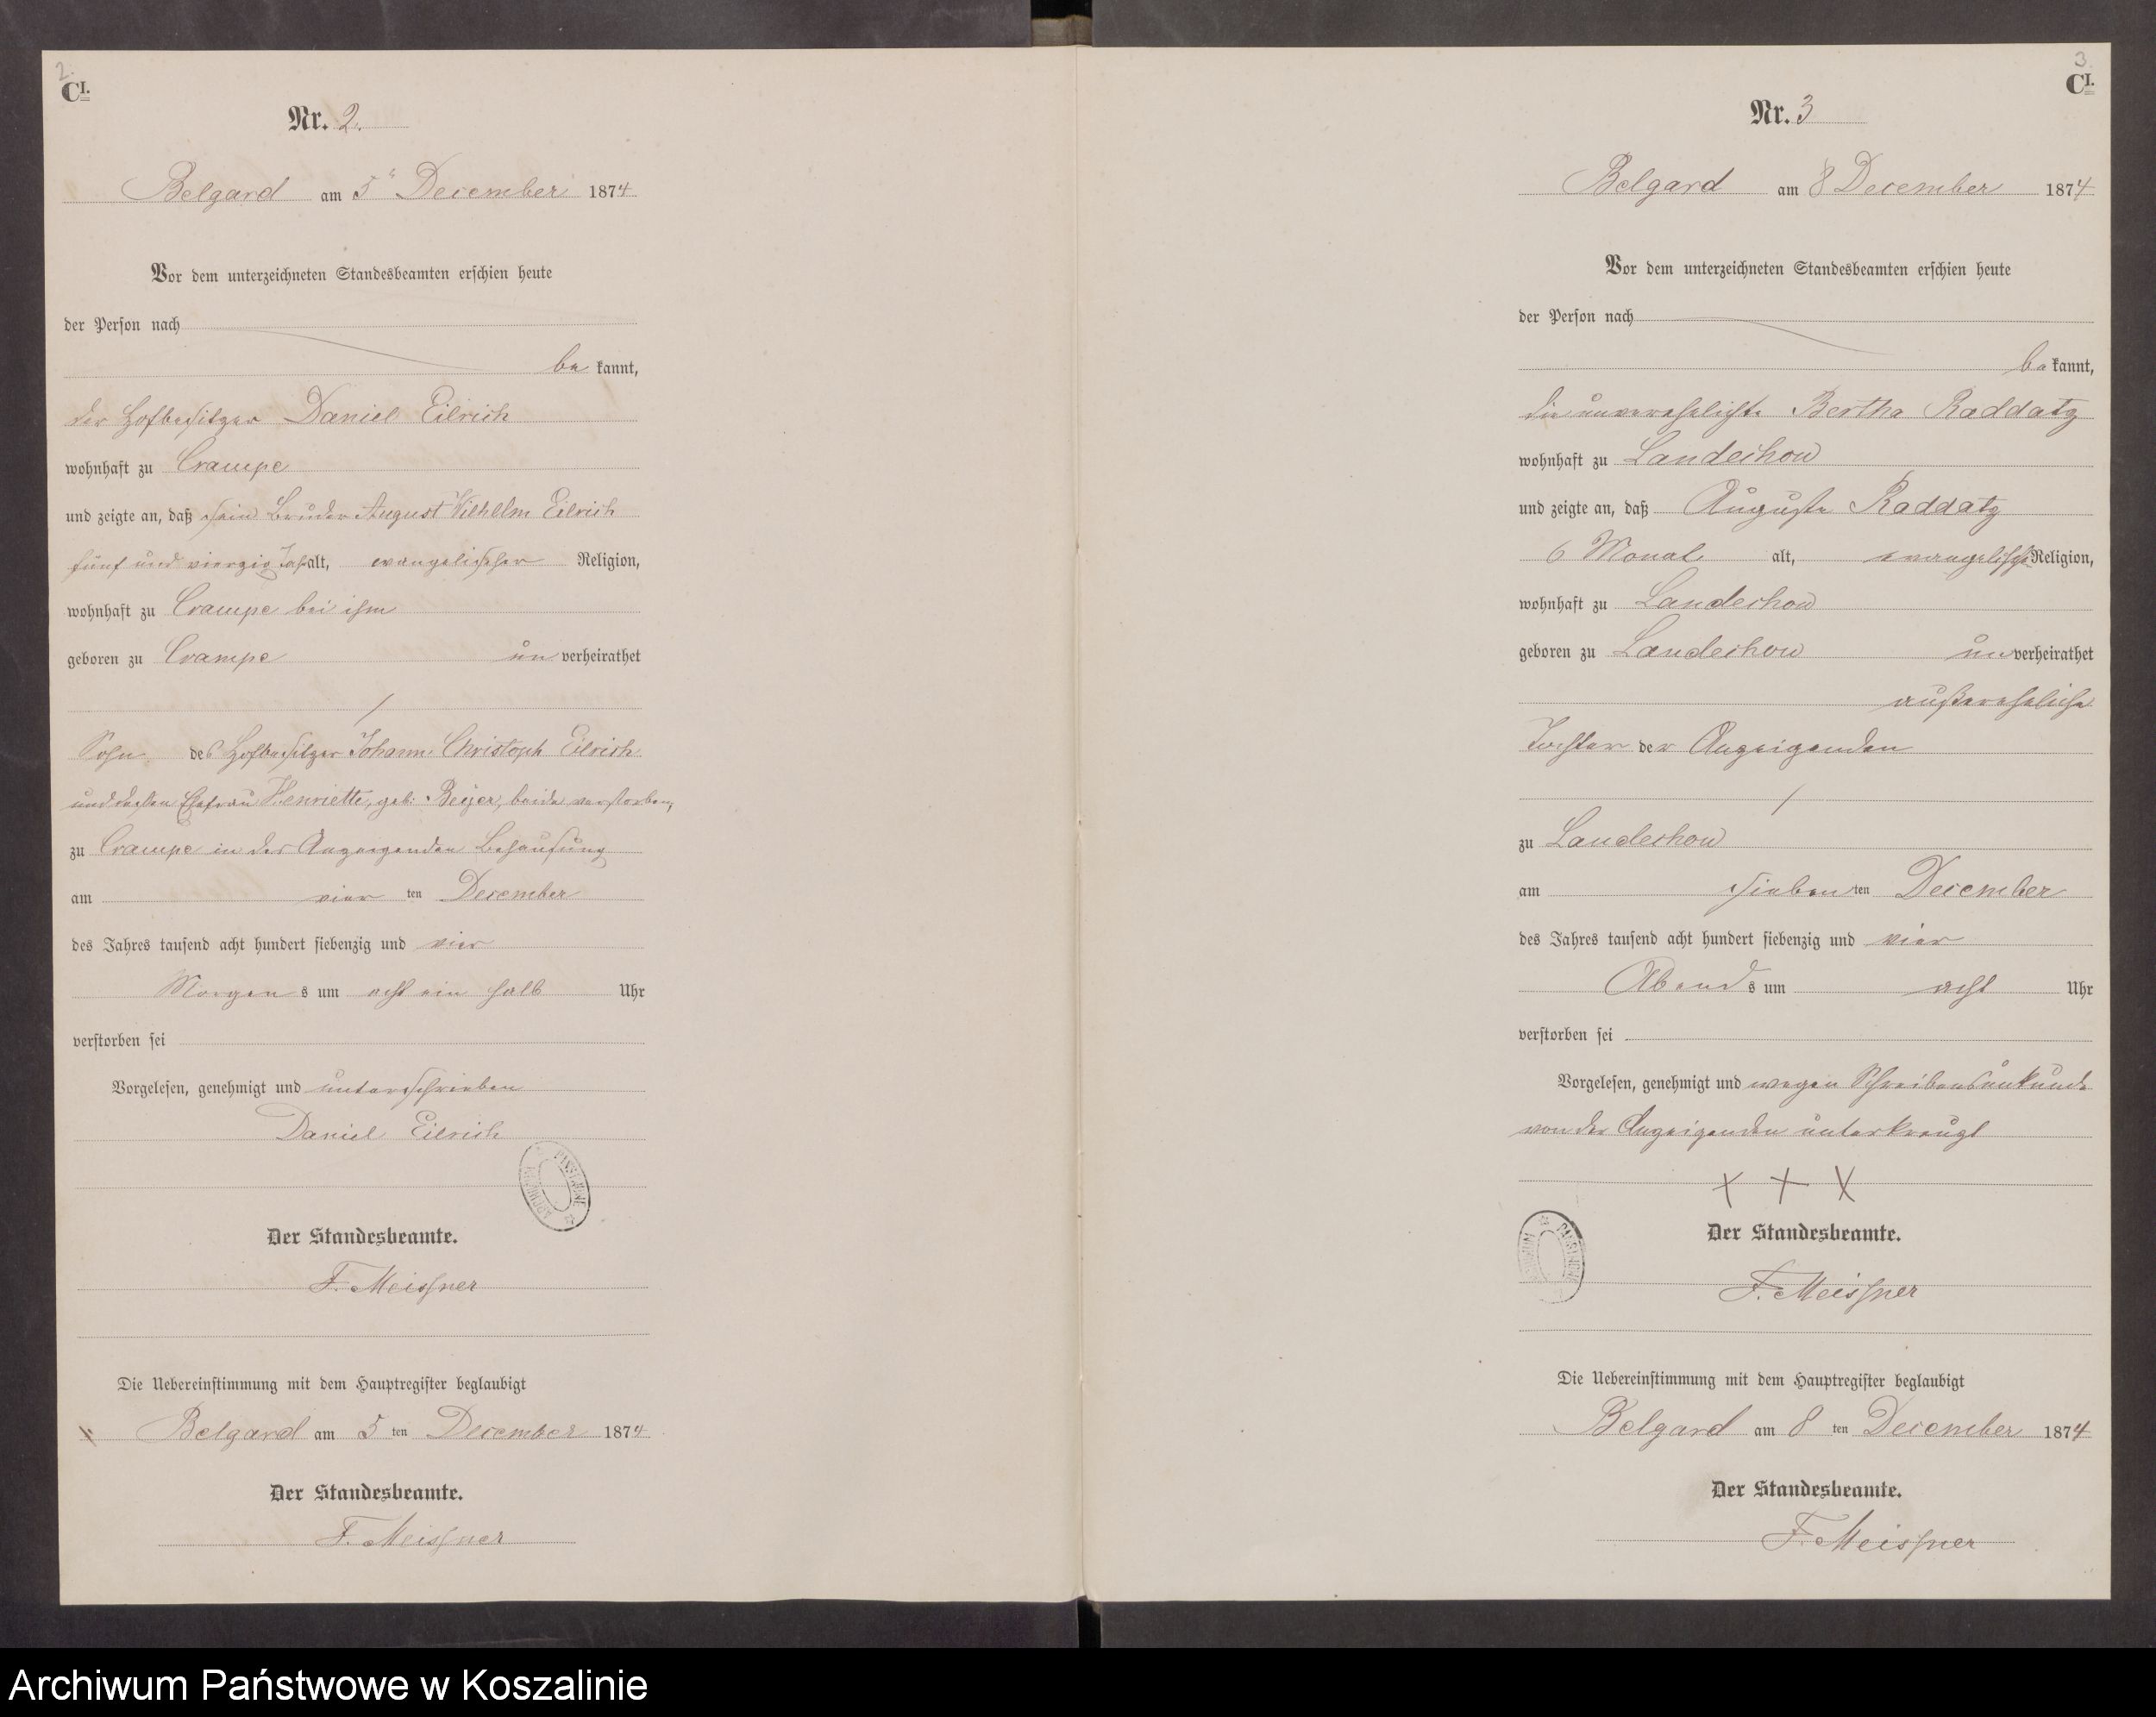 2.
CI.
Nr. 2.
Belgard am 5ᵗ December 1874
Vor dem unterzeichneten Standesbeamten erschien heute
der Person nach
be kannt,
der Hofbesitzer Daniel Eilrich
wohnhaft zu Crampe
und zeigte an, daß sein Bruder August Wilhelm Eilrich
fünf und vierzig Jahr alt, evangelischer Religion,
wohnhaft zu Crampe bei ihm
geboren zu Crampe un verheirathet
/
Sohn des Hofbesitzer Johann Christoph Eilrich
und dessen Ehefrau Henriette, geb: Beijer, beide verstorben,
zu Crampe in des Anzeigenden Behausung
am vier ten December
des Jahres tausend acht hundert siebenzig und vier
Morgen s um acht ein halb Uhr
verstorben sei
Vorgelesen, genehmigt und unterschrieben
Daniel Eilrich
ARCHIWUM PAŃSTWOWE
Der Standesbeamte.
F. Meissner
Die Uebereinstimmung mit dem Hauptregister beglaubigt
Belgard am 5 ten December 1874
Der Standesbeamte.
F. Meissner
3.
CI.
Nr. 3
Belgard am 8 December 1874
Vor dem unterzeichneten Standesbeamten erschien heute
der Person nach
be kannt,
die unverehelichte Bertha Raddatz
wohnhaft zu Landechow
und zeigte an, daß Auguste Raddatz
6 Monat alt, evangelischer Religion,
wohnhaft zu Landechow
geboren zu Landechow un verheirathet
außereheliche
Tochter der Anzeigenden
/
zu Landechow
am sieben ten December
des Jahres tausend acht hundert siebenzig und vier
Abend s um acht Uhr
verstorben sei
Vorgelesen, genehmigt und wegen Schreibensunkunde
von der Anzeigenden unterkreuzt
+ + X
ARCHIWUM PAŃSTWOWE
Der Standesbeamte.
F. Meissner
Die Uebereinstimmung mit dem Hauptregister beglaubigt
Belgard am 8 ten December 1874
Der Standesbeamte.
F. Meissner
Archiwum Państwowe w Koszalinie